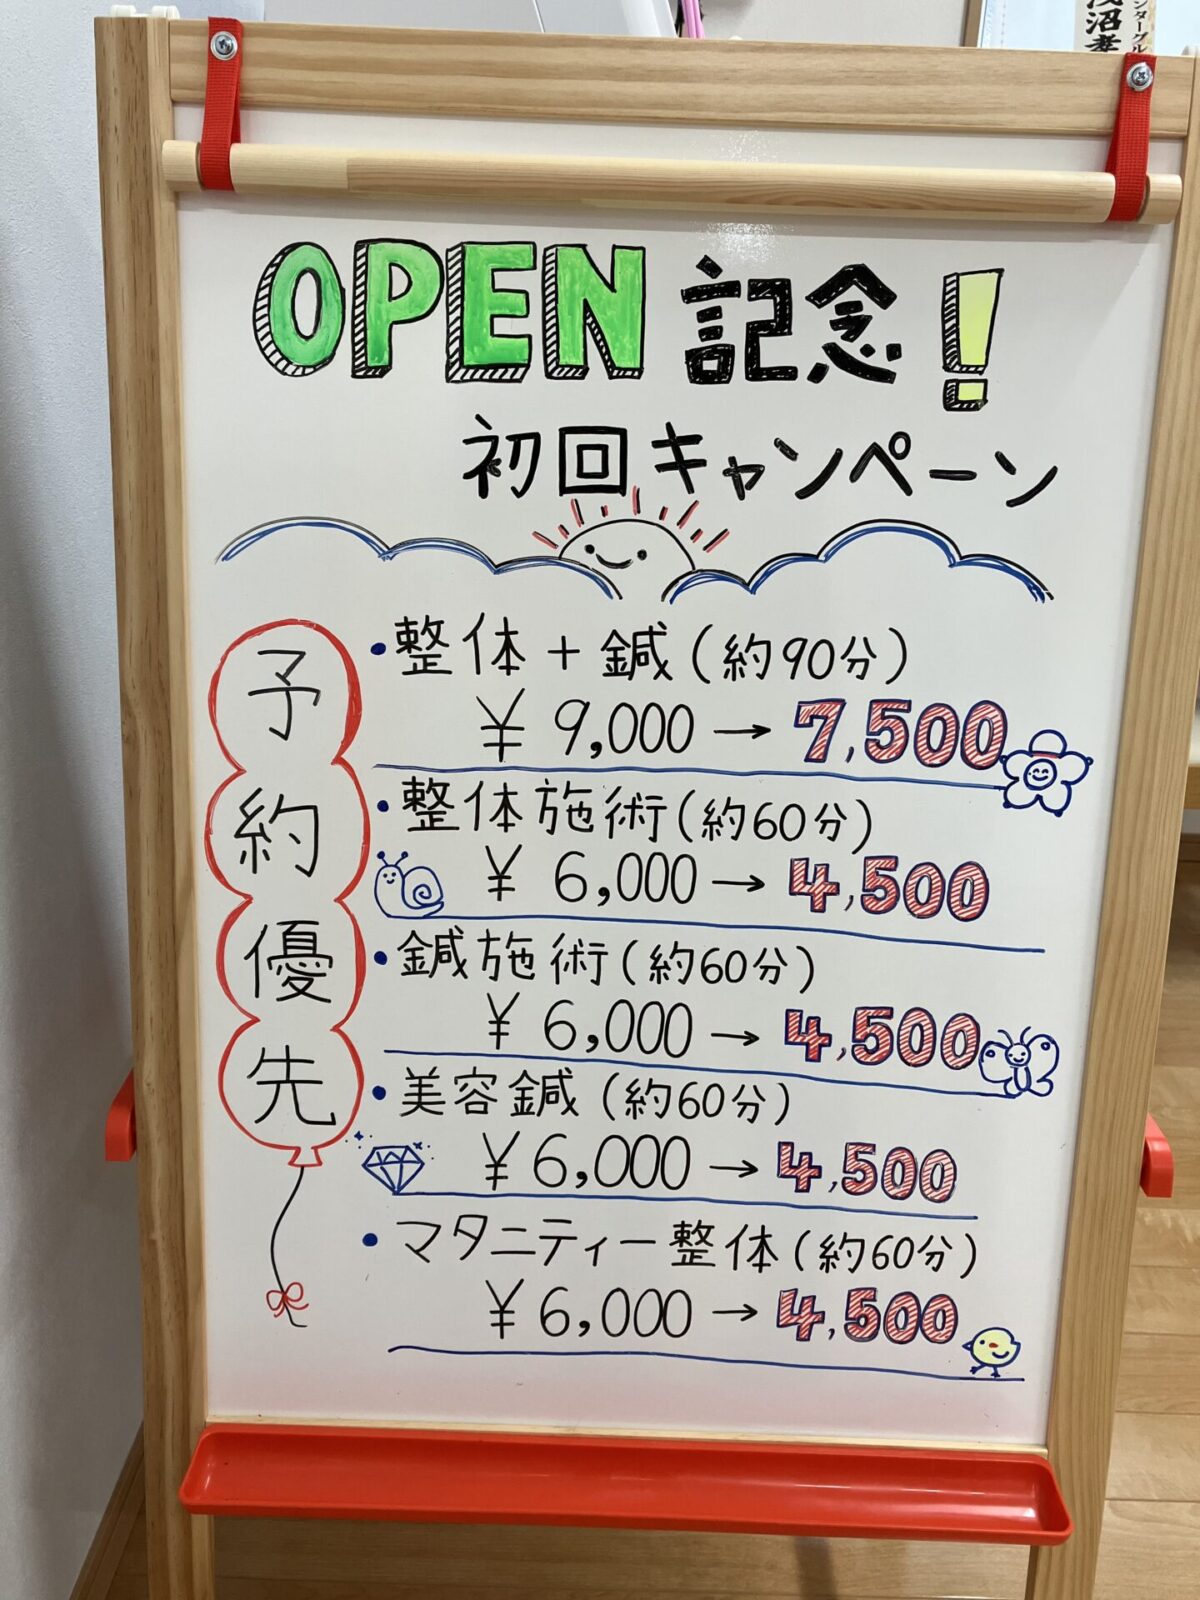 OPEN 記念!
初回キャンペーン
予約優先
・整体+鍼(約90分)
¥9,000→7,500
・整体施術(約60分)
¥6,000→4,500
・鍼施術(約60分)
¥6,000→4,500
・美容鍼(約60分)
¥6,000→4,500
・マタニティー整体(約60分)
¥6,000→4,500